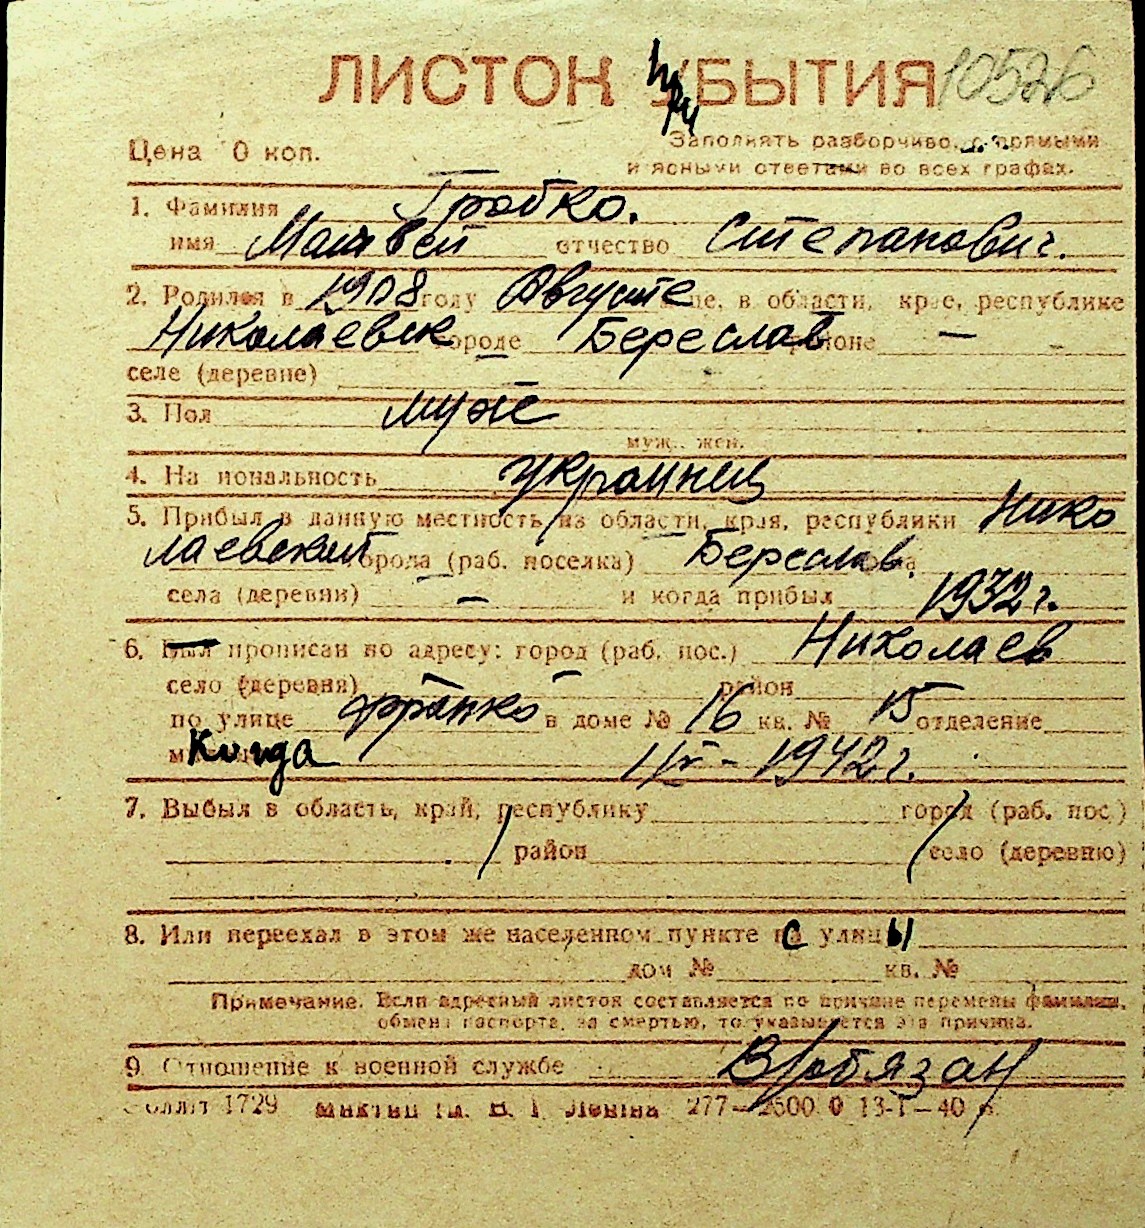 ЛИСТОН при БЫТИЯ 10526
Цена 0 коп. Заполнять разборчиво, с прямыми
и ясными ответами во всех графах.
1. Фамилия Гробко.
имя Матвей отчество Степанович.
2. Родился в 1908 году Августе це, в области, крае, республике
Николаевск городе Береслав районе —
селе (деревне) —
3. Пол муж
муж., жен.
4. На иональность украинец
5. Прибыл в данную местность из области, края, республики Нико
лаевский города (раб. поселка) Береслав.
села (деревни) — и когда прибыл 1932 г.
6. Был прописан по адресу: город (раб. пос.) Николаев
село (деревня) — район —
по улице Франко в доме № 16 кв. № 15 отделение
Когда 1/IV - 1942 г.
7. Выбыл в область, край, республику город (раб. пос.)
район село (деревню)
8. Или переехал в этом же населенном пункте с улицы
дом № кв. №
Примечание. Если адресный листок составляется по причине перемены фамилии,
обмена паспорта, за смертью, то указывается эта причина.
9. Отношение к военной службе В/обязан
оллит 1729 им. В. І. Леніна 277—2500 0 13-І—40 р.